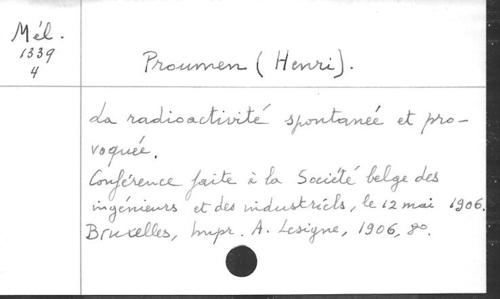 Mél.
1339
4
Proumen (Henri).
La radioactivité spontanéé et pro-
voquée.
Conférence faite à la Société belge des
ingénieurs et des industriels, le 12 mai 1906.
Bruxelles, Impr. A. Lesigne, 1906, 8o.